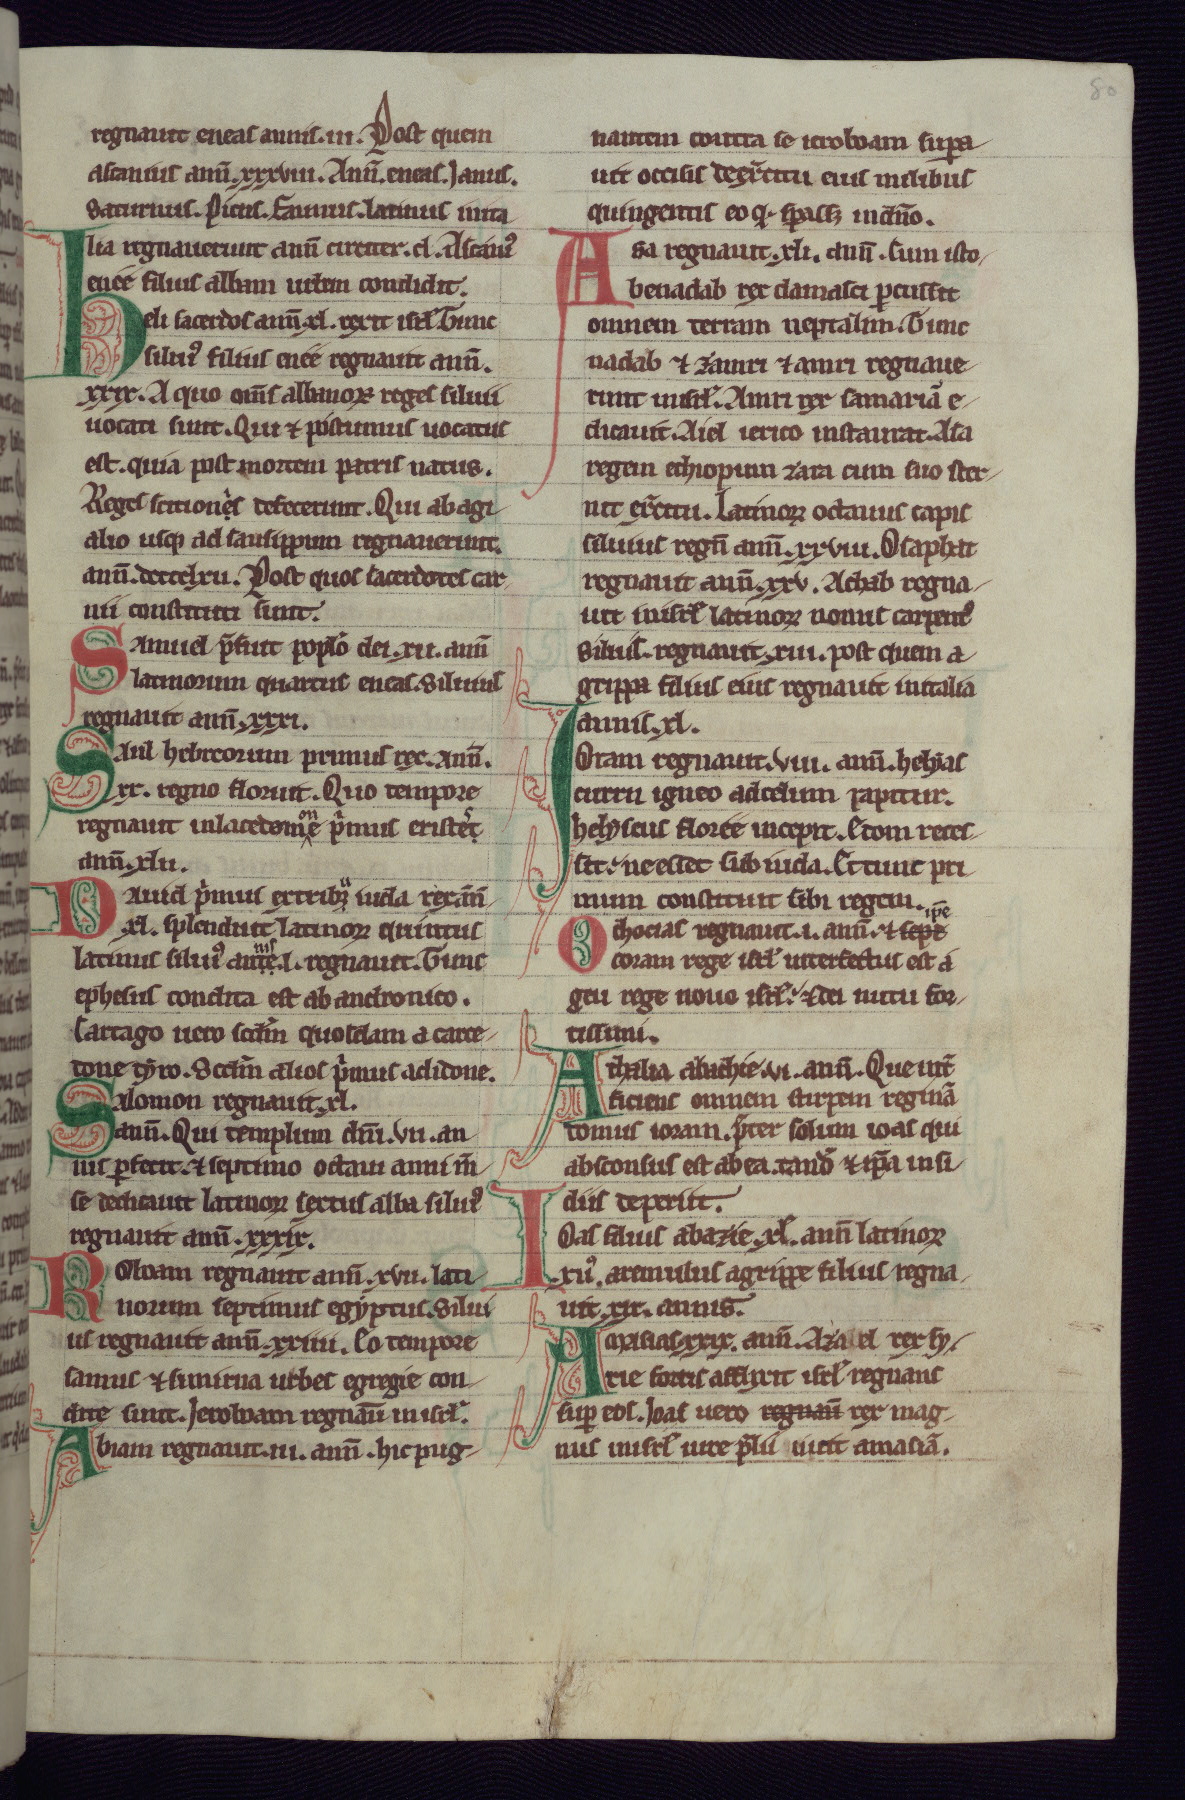 80
regnauit eneas annis .iii. Post quem
ascanius annī .xxxviii. Annī. eneas. Janus.
Saturnus. Picus. Faunus. latinus inita
lia regnauerunt annī circiter .cl. Ascani᾿
eneę filius albam urbem condidit.
Heli sacerdos annī .xl. rexit isrl̄. Tunc
silui᾿ filius eneę regnauit annī.
xxix. A quo om̄s albanoꝝ reges siluii
uocati sunt. Qui ⁊ postumus uocatus
est. quia post mortem patris natus.
Reges sicionēs defecerunt. Qui ab agi
alio usq; ad sausippum regnauerunt.
annī. dcccclxii. Post quos sacerdotes car
nii constituti sunt.
Samuel p̄fuit poplō dei .xii. annī
latinorum quartus eneas. Siluius
regnauit annī .xxxi.
Saul hebreorum primus rex. annī.
xx. regno floruit. Quo tempore
regnauit inlacedemonę p̄mus
annī .xlii.
Dauid p̄mus ex tribu iuda rex annī
.xl. splenduit latinoꝝ quintus
latinus silui᾿ annis .l. regnauit. Tunc
ephesus condita est ab andronico.
Cartago uero scdm̄ quosdam a carce
done tyro. Scdm̄ alios p̄mus a didone.
Salomon regnauit .xl.
annī. Qui templum dnī .vii. an
nis ꝑfecit. ⁊ septimo octaui anni m̄
se dedicauit latinoꝝ sextus alba silui᾿
regnauit annī .xxxix.
Roboam regnauit annī .xvii. lati
norum septimus egyptus. Silui
us regnauit annī .xxiiii. Eo tempore
samus ⁊ smirna urbes egregie con
dite sunt. Jeroboam regnau̅ in isrl̄.
Abiam regnauit .iii. annī. hic pug
nantem contra se ieroboam supera
uit occisis de exc̄itu eius milibus
quingentis eo q᾿ in dn̄o.
Asa regnauit .xli. annī. Cum isto
benadab rex damasci ꝑcussit
omnem terram neptalim. Tunc
nadab ⁊ zamri ⁊ amri regnaue
runt in isrl̄. Amri rex samariā e
dicauit. Aiel ierico instaurat. Asa
regem ethiopum zara cum suo ster
nit exc̄itu. Latinoꝝ octauus capis
siluius regn̄ annī .xxviii. Osaphat
regnauit annī .xxv. Achab regna
uit in isrl̄ latinoꝝ nonus carpent᾿
siluius. regnauit .xiii. post quem a
grippa filius eius regnauit initalia
annis .xl.
IOram regnauit .viii. annī. helyas
curru igneo ad celum rapitur.
helyseus florēe incepit. Edom reces
sit ne esset sub iuda. Et tunc pri
mum constituit sibi regem.
Ochozias regnauit .i. annī. ⁊ ip̄e
coram rege isrl̄ interfectus est a
geu rege nouo isrl̄. ⁊ dei nutu for
tissimi.
Athalia abachie .vi. annī. Que int̄
ficiens omnem stirpem reginā
domus ioram. p̄ter solum ioas qui
absconsus est ab ea. tandē ⁊ ip̄a insi
diis deperiit.
IOas filius abazie .xl. annī latinoꝝ
.xi᾿. aremulus agrippe filius regna
uit .xix. annis.
Amasias .xxix. annī. Azahel rex sy
rie fortis afflixit isrl̄ regnans
sup eos. Joas uero regnau̅ rex mag
nus in isrl̄ iure p̄lii uicit amasiā.